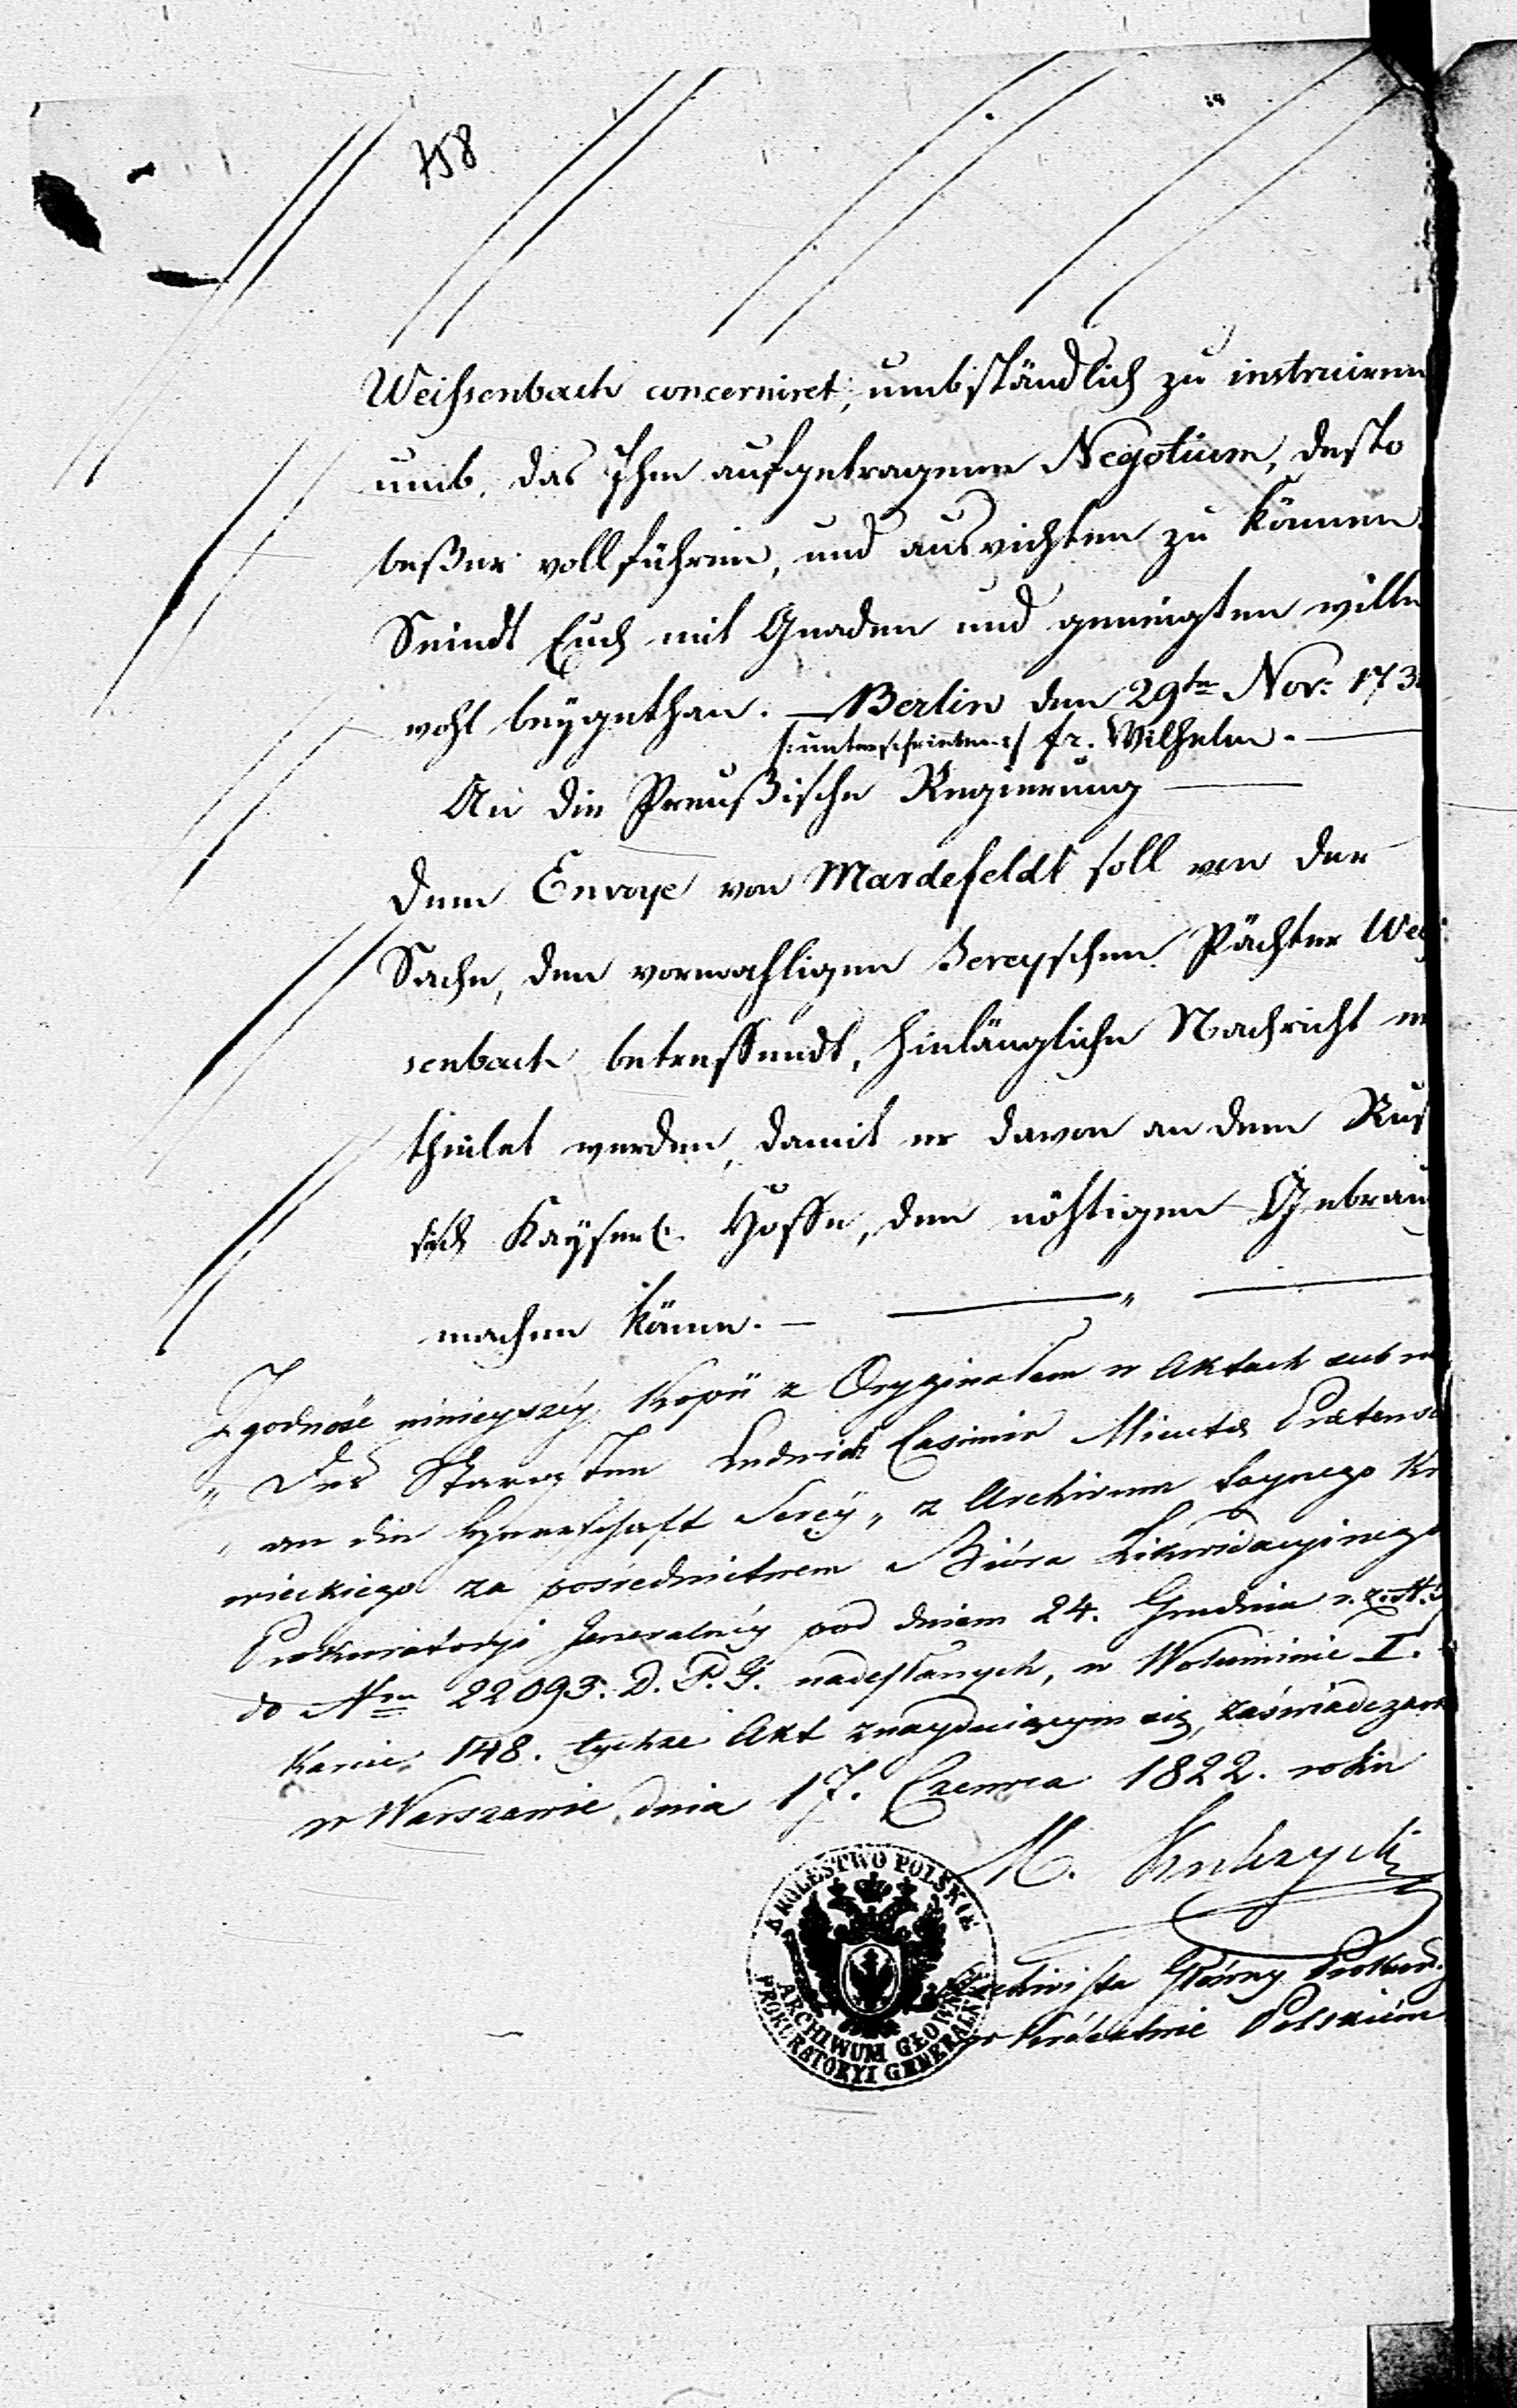 758
Weissenbach concerniret, umbständlich zu instruiren
umb, das Ihm aufgetragene Negotium, desto
beßer vollführen, und ausrichten zu können.
Seindt Euch mit Gnaden und geneigten wille
wohl beygethan. — Berlin den 29ten Nov: 173
/:unterschrieben:/ fr. Wilhelm. —
An die Preußische Regierung —
Dem Envoye von Mardefeldt soll von der
Sache, den vormahligen Sereyschen Pächter Wei
senbach betreffendt, hinlängliche Nachricht er
theilet werden, damit er davon an dem Rus
sisch Kayserl. Hoffe, den nöhtigen Gebrau
machen könne. — — " —
Zgodność ninieyszéy Kopii z Oryginałem w Aktach sub
" Des Starosten Ludwich Casimir Prætens
" an die Herrschaft Serey " z Archivum taynego Kr
wieckiego za pośrednictwem Bióra Likwidacyinego
Prokuratoryi Jeneralnéy pod dniem 24. Grudnia r. z.
do Nru 22093. D. P. G. nadesłanych, w Woluminie I.
Karcie 148. tychże Akt znayduiącym się, zaświadczam
w Warszawie dnia 17. Czerwca 1822. roku
M.
Archivista Główny Prokur.
w Królestwie Polskiém
KRÓLESTWO POLSKIE
ARCHIWUM GŁOWNE
PROKURATORYI GENERALNEY